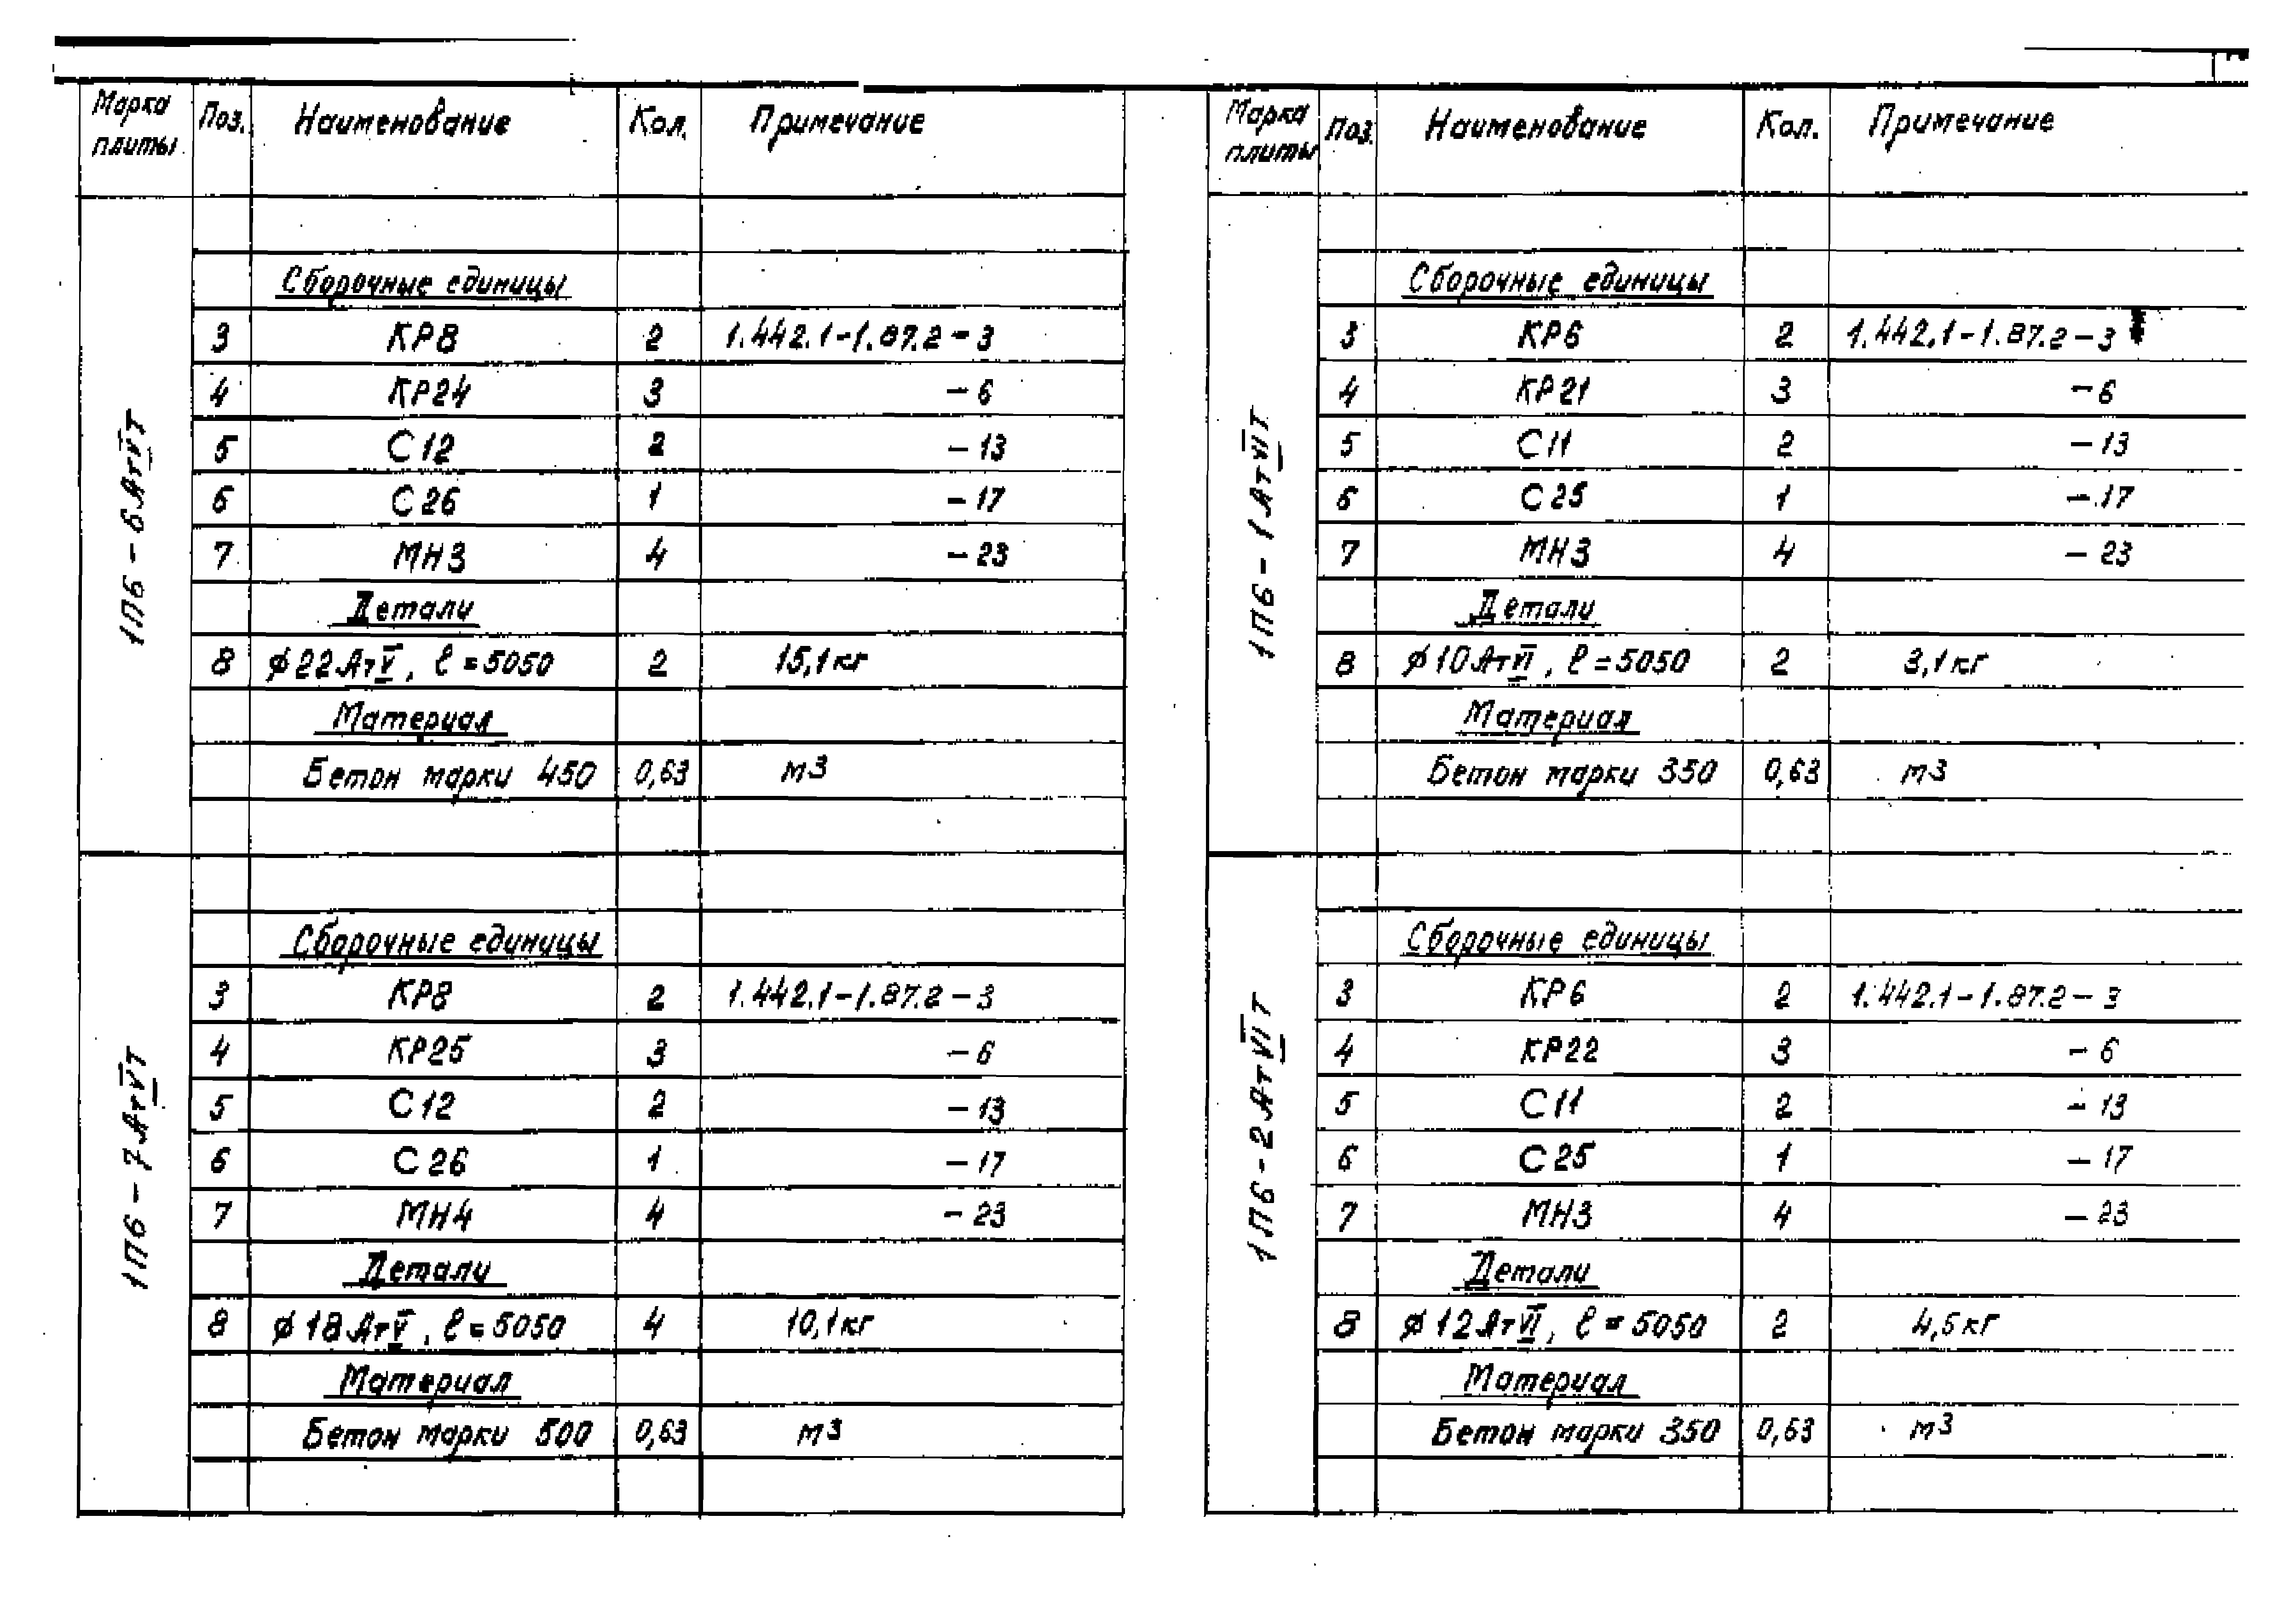 Марка плиты Поз. Наименование Кол. Примечание
1П6-6АтVТ
Сборочные единицы
3 КР8 2 1.442.1-1.87.2-3
4 КР24 3 -6
5 С12 2 -13
6 С26 1 -17
7 МН3 4 -23
Детали
8 ⌀22АтV, ℓ=5050 2 15,1кг
Материал
Бетон марки 450 0,63 м3
1П6-7АтVТ
Сборочные единицы
3 КР8 2 1.442.1-1.87.2-3
4 КР25 3 -6
5 С12 2 -13
6 С26 1 -17
7 МН4 4 -23
Детали
8 ⌀18АтV, ℓ=5050 4 10,1кг
Материал
Бетон марки 500 0,63 м3
Марка плиты Поз. Наименование Кол. Примечание
1П6-1АтVIТ
Сборочные единицы
3 КР6 2 1.442.1-1.87.2-3
4 КР21 3 -6
5 С11 2 -13
6 С25 1 -17
7 МН3 4 -23
Детали
8 ⌀10АтVI, ℓ=5050 2 3,1кг
Материал
Бетон марки 350 0,63 м3
1П6-2АтVIТ
Сборочные единицы
3 КР6 2 1.442.1-1.87.2-3
4 КР22 3 -6
5 С11 2 -13
6 С25 1 -17
7 МН3 4 -23
Детали
8 ⌀12АтVI, ℓ=5050 2 4,5кг
Материал
Бетон марки 350 0,63 м3